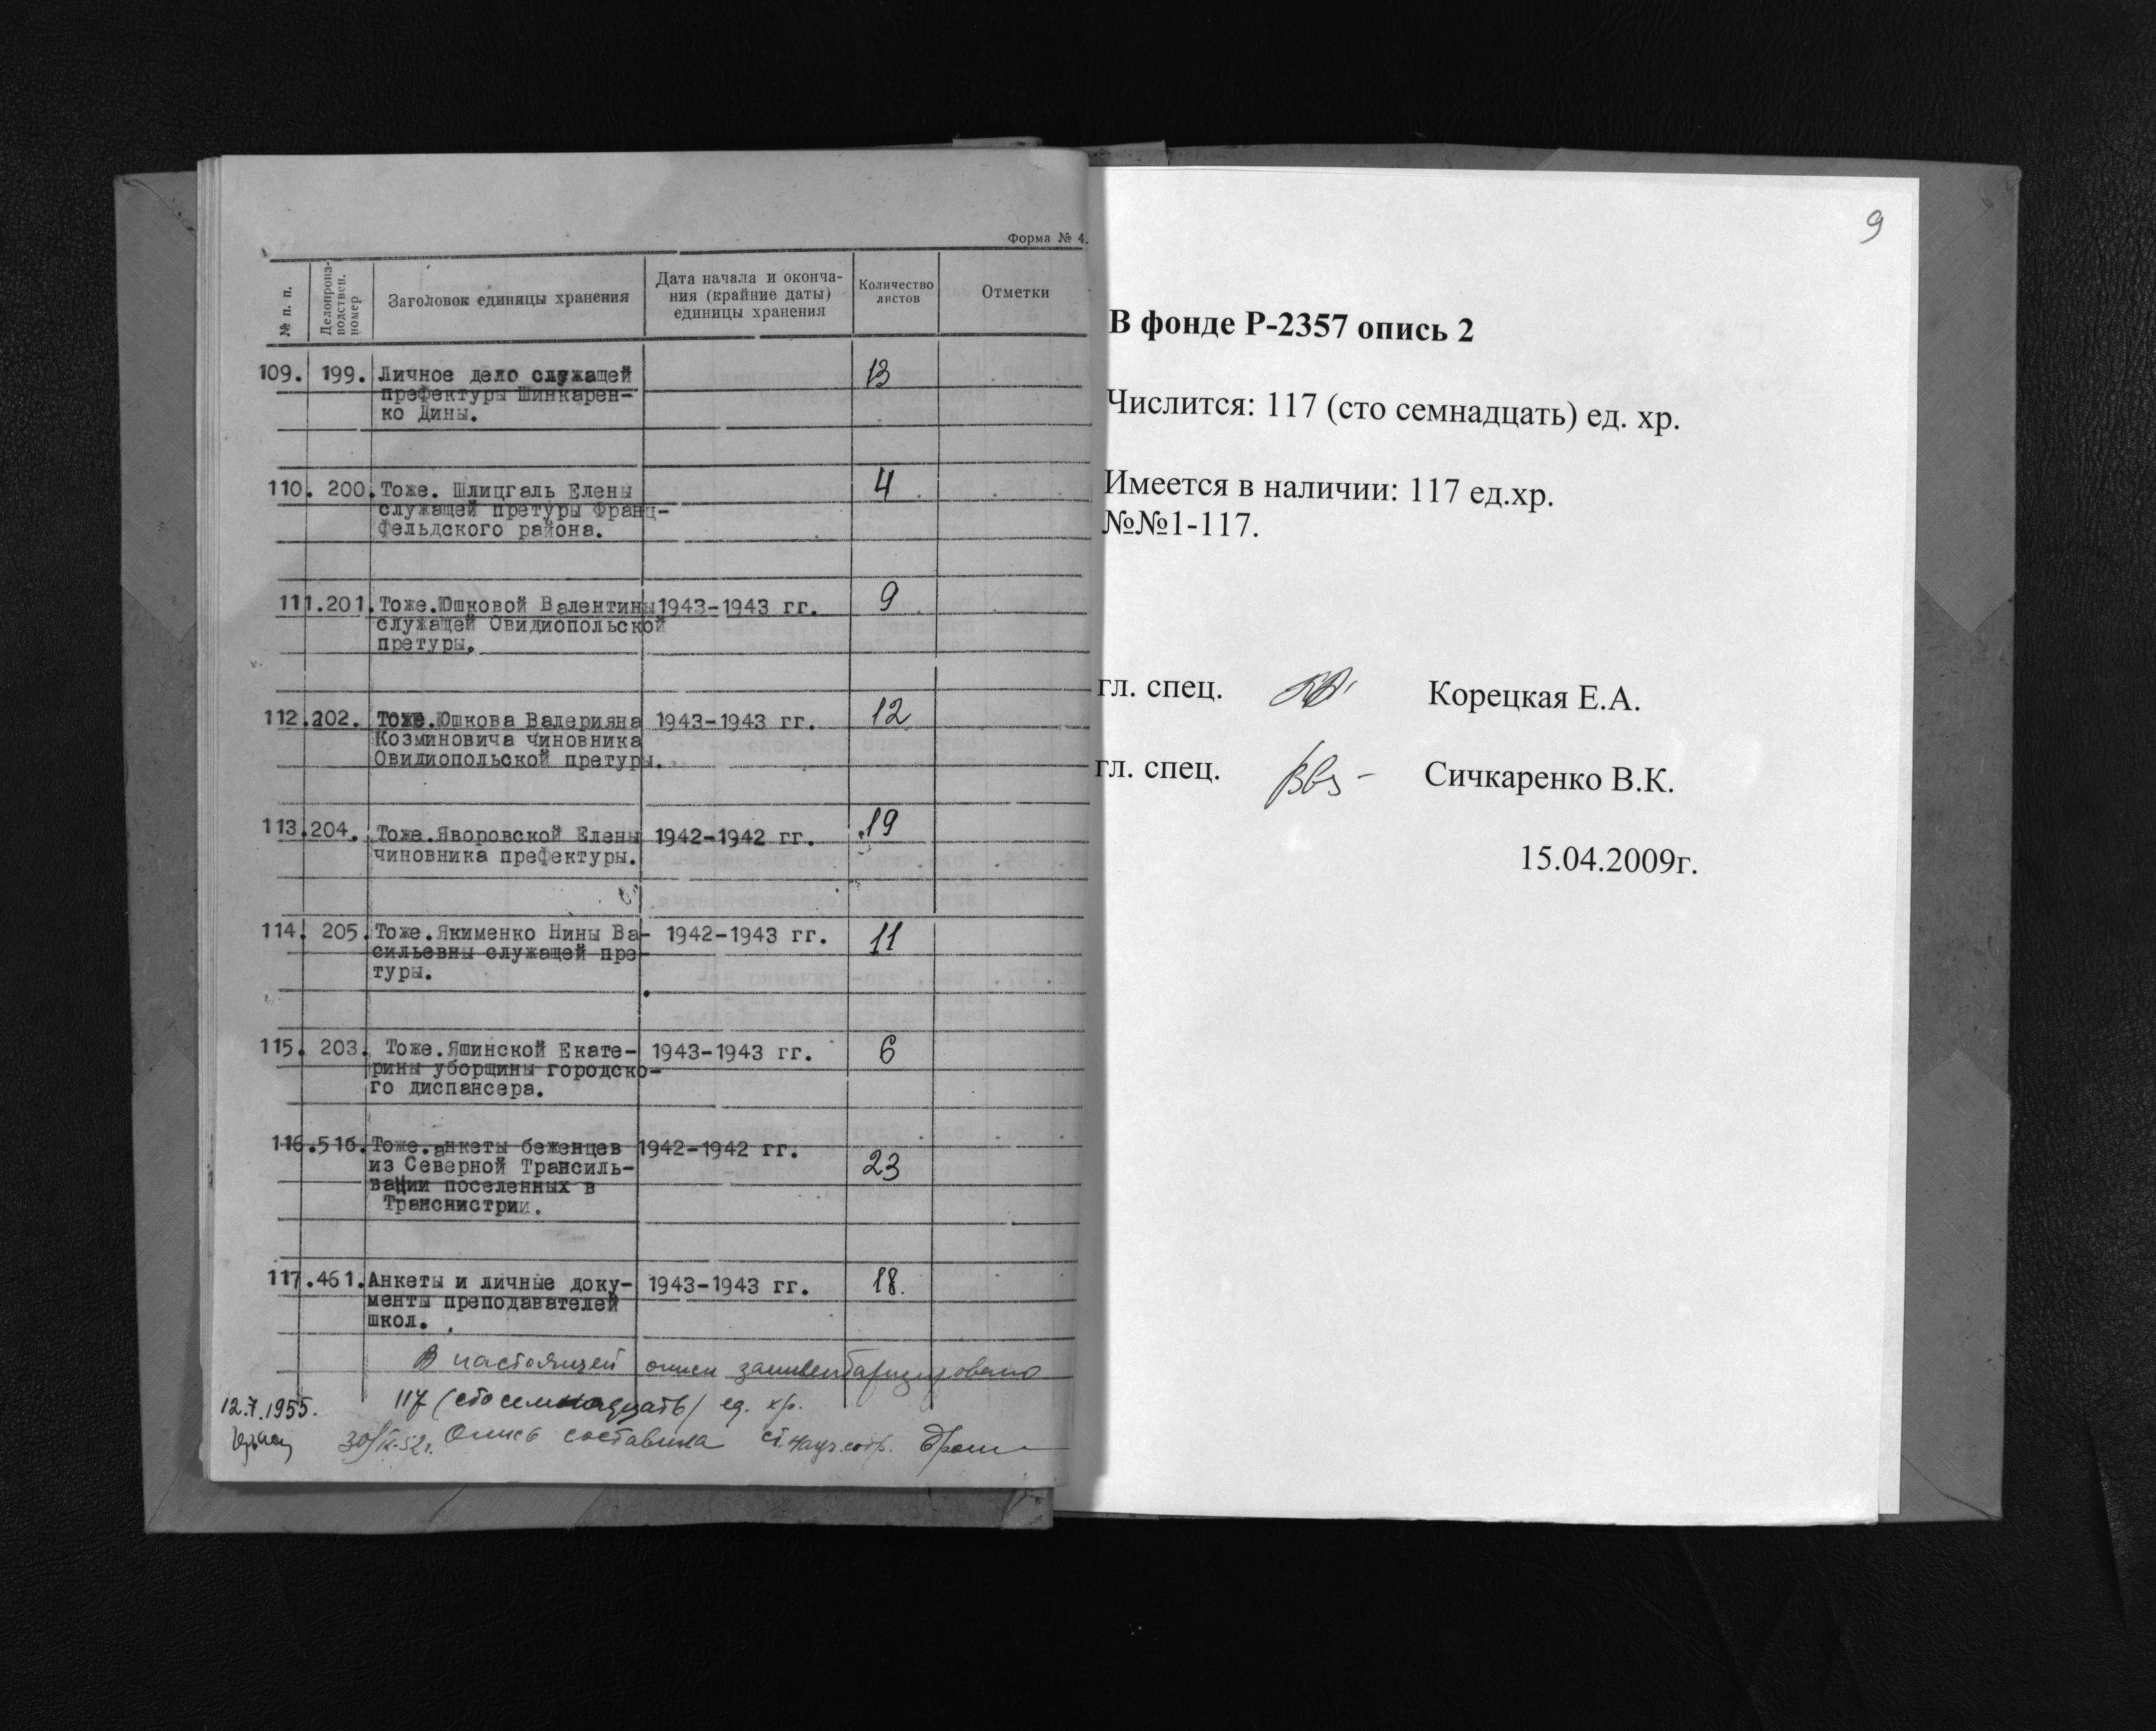 Форма № 4.
№ п. п.
Делопроиз-
водствен.
номер
Заголовок единицы хранения
Дата начала и оконча-
ния (крайние даты)
единицы хранения
Количество
листов
Отметки
109. 199. Личное дело служащей 13
префектуры Шинкарен-
ко Дины.
110. 200. Тоже. Шлицгаль Елены 4
служащей претуры Франц-
фельдского района.
111. 201. Тоже. Юшковой Валентины 1943-1943 гг. 9
служащей Овидиопольской
претуры.
112. 202. Тоже. Юшкова Валерияна 1943-1943 гг. 12
Козминовича чиновника
Овидиопольской претуры.
113. 204. Тоже. Яворовской Елены 1942-1942 гг. 19
чиновника префектуры.
114. 205. Тоже. Якименко Нины Ва- 1942-1943 гг. 11
сильевны служащей пре-
туры.
115. 203. Тоже. Яшинской Екате- 1943-1943 гг. 6
рины уборщины городско-
го диспансера.
116. 516. Тоже. анкеты беженцев 1942-1942 гг. 23
из Северной Трансиль-
вации поселенных в
Транснистрии.
117. 461. Анкеты и личные доку- 1943-1943 гг. 18.
менты преподавателей
школ.
В настоящей описи заинвентаризировано
117 (сто семнадцать) ед. хр.
12.7.1955.
30/IX-52г. Опись составила ст. науч. сотр.
9
В фонде Р-2357 опись 2
Числится: 117 (сто семнадцать) ед. хр.
Имеется в наличии: 117 ед.хр.
№№1-117.
гл. спец. Корецкая Е.А.
гл. спец. Сичкаренко В.К.
15.04.2009г.